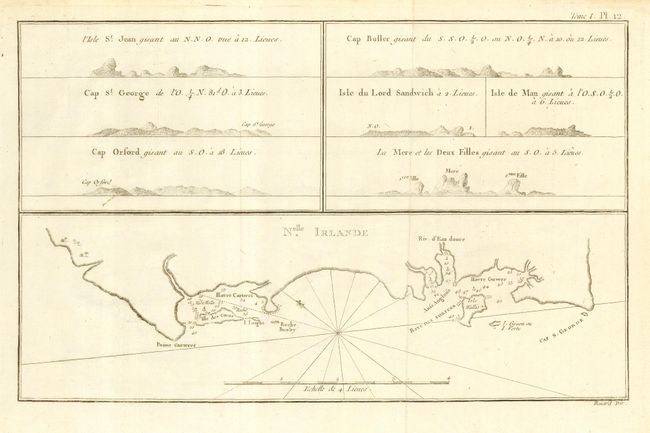 Tome I. Pl. 12
l'Isle St. Jean gisant au N.N.O. vue à 12. Lieues.
Cap Buller gisant du S.S.O. ¼ O. au N.O. ¼ N. à 10. ou 12. Lieues.
Cap St. George de l'O. ¼ N. 81d O. à 3. Lieues.
Cap St George
Isle du Lord Sandwich à 2. Lieues.
N.O.
Isle de Man gisant à l'O.S.O. ¼ O.
à 6. Lieues.
Cap Orford gisant au S.O. à 18. Lieues.
Cap Orford
La Mere et les Deux Filles gisant au S.O. à 5. Lieues.
Mere
Fille
Fille
Nelle IRLANDE
Riv. d'Eau douce
Havre Carteret
Havre Gower
Isle des Cocos
I. Leigh
Roche
Booby
Pointe Carteret
I. Green ou
Verte
Cap St. GEORGE
Echelle de 4 Lieues
Benard Dir.